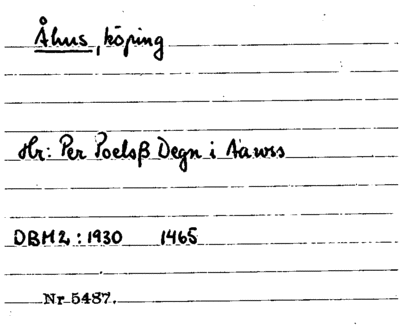 Åhus, köping
Hr: Per Poelsß Degn i Aawss
DBM2: 1930 1465
Nr 5487.